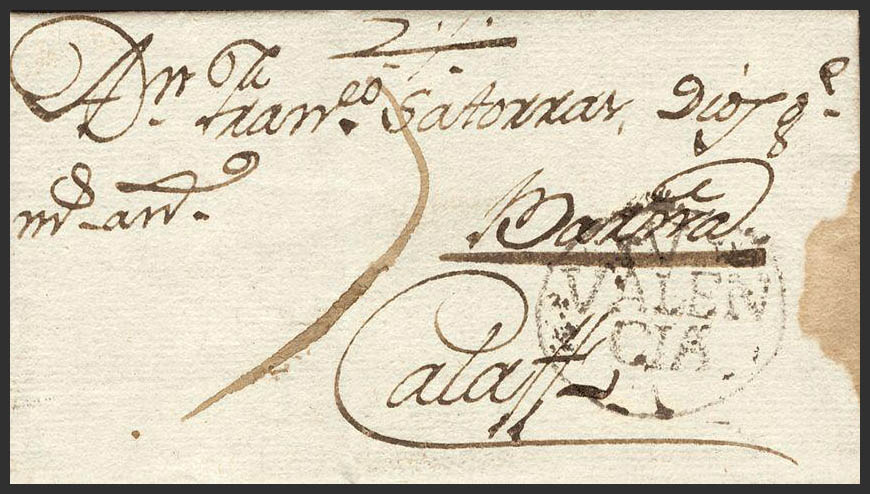 A Dn Franco Satorras, Dios ge
ms. as.
Barna
VALEN
CIA
Calaff